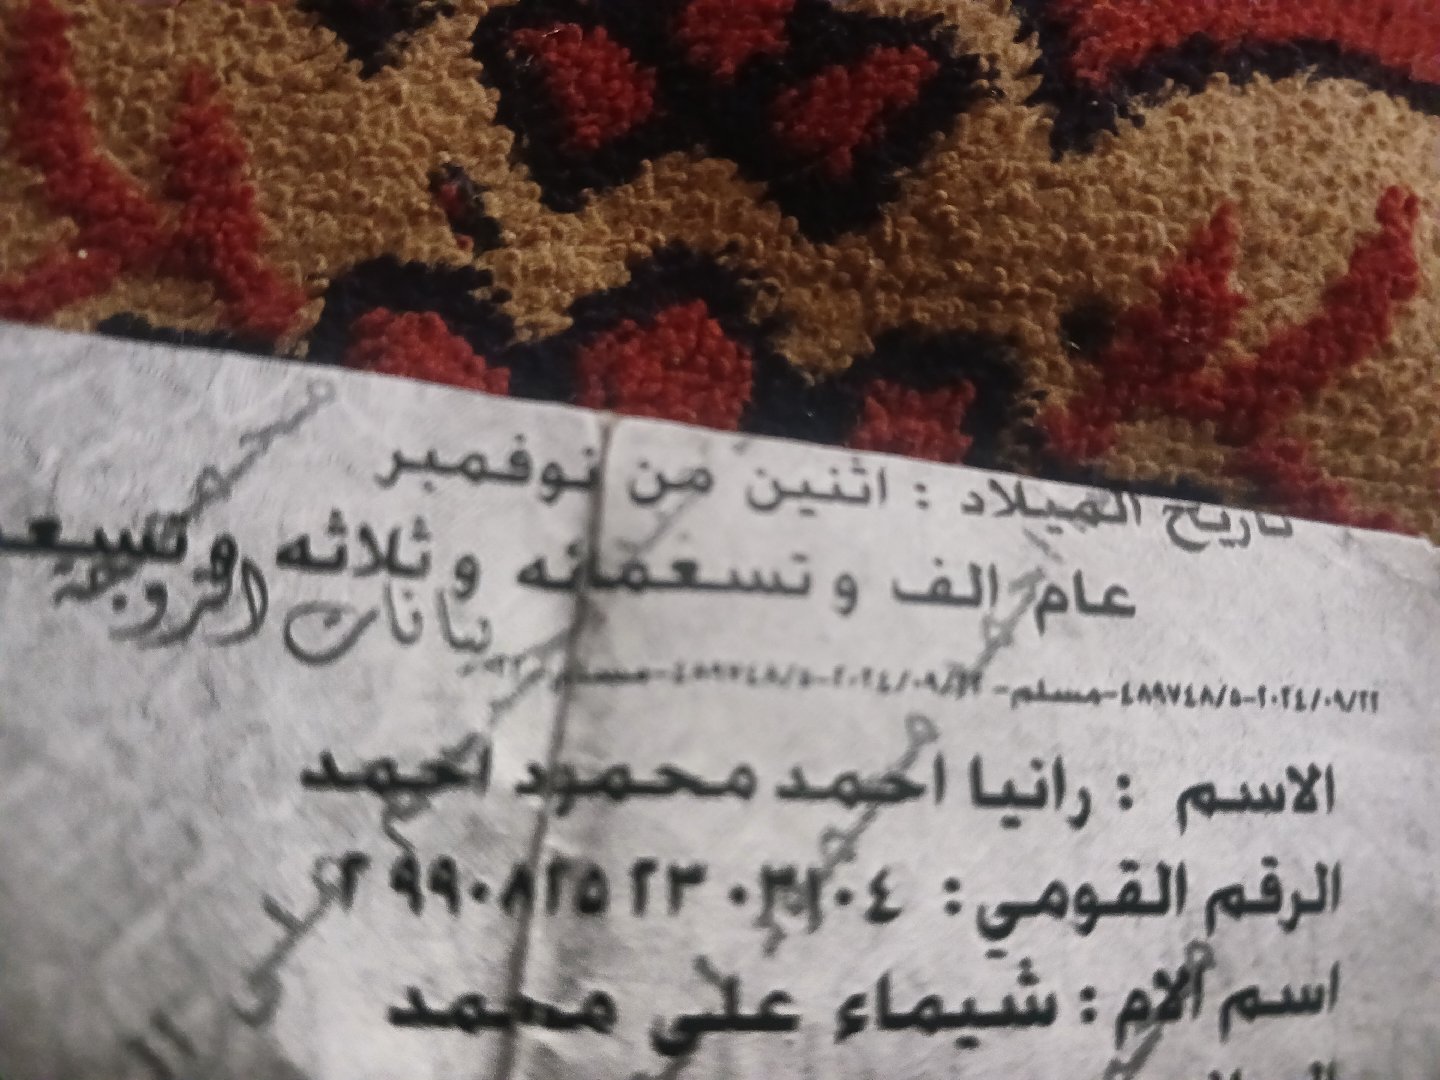 تاريخ الميلاد : اثنين من نوفمبر
عام الف و تسعمائه و ثلاثه و تسعه
بيانات الزوجة
٢٠٢٤/٠٩/٢٢-٤٨٩٧٤٨/٥-مسلم-
الاسم : رانيا احمد محمود احمد
الرقم القومي : ٢٩٩٠٨٢٥٢٣٠٣٢٠٤
اسم الام : شيماء على محمد